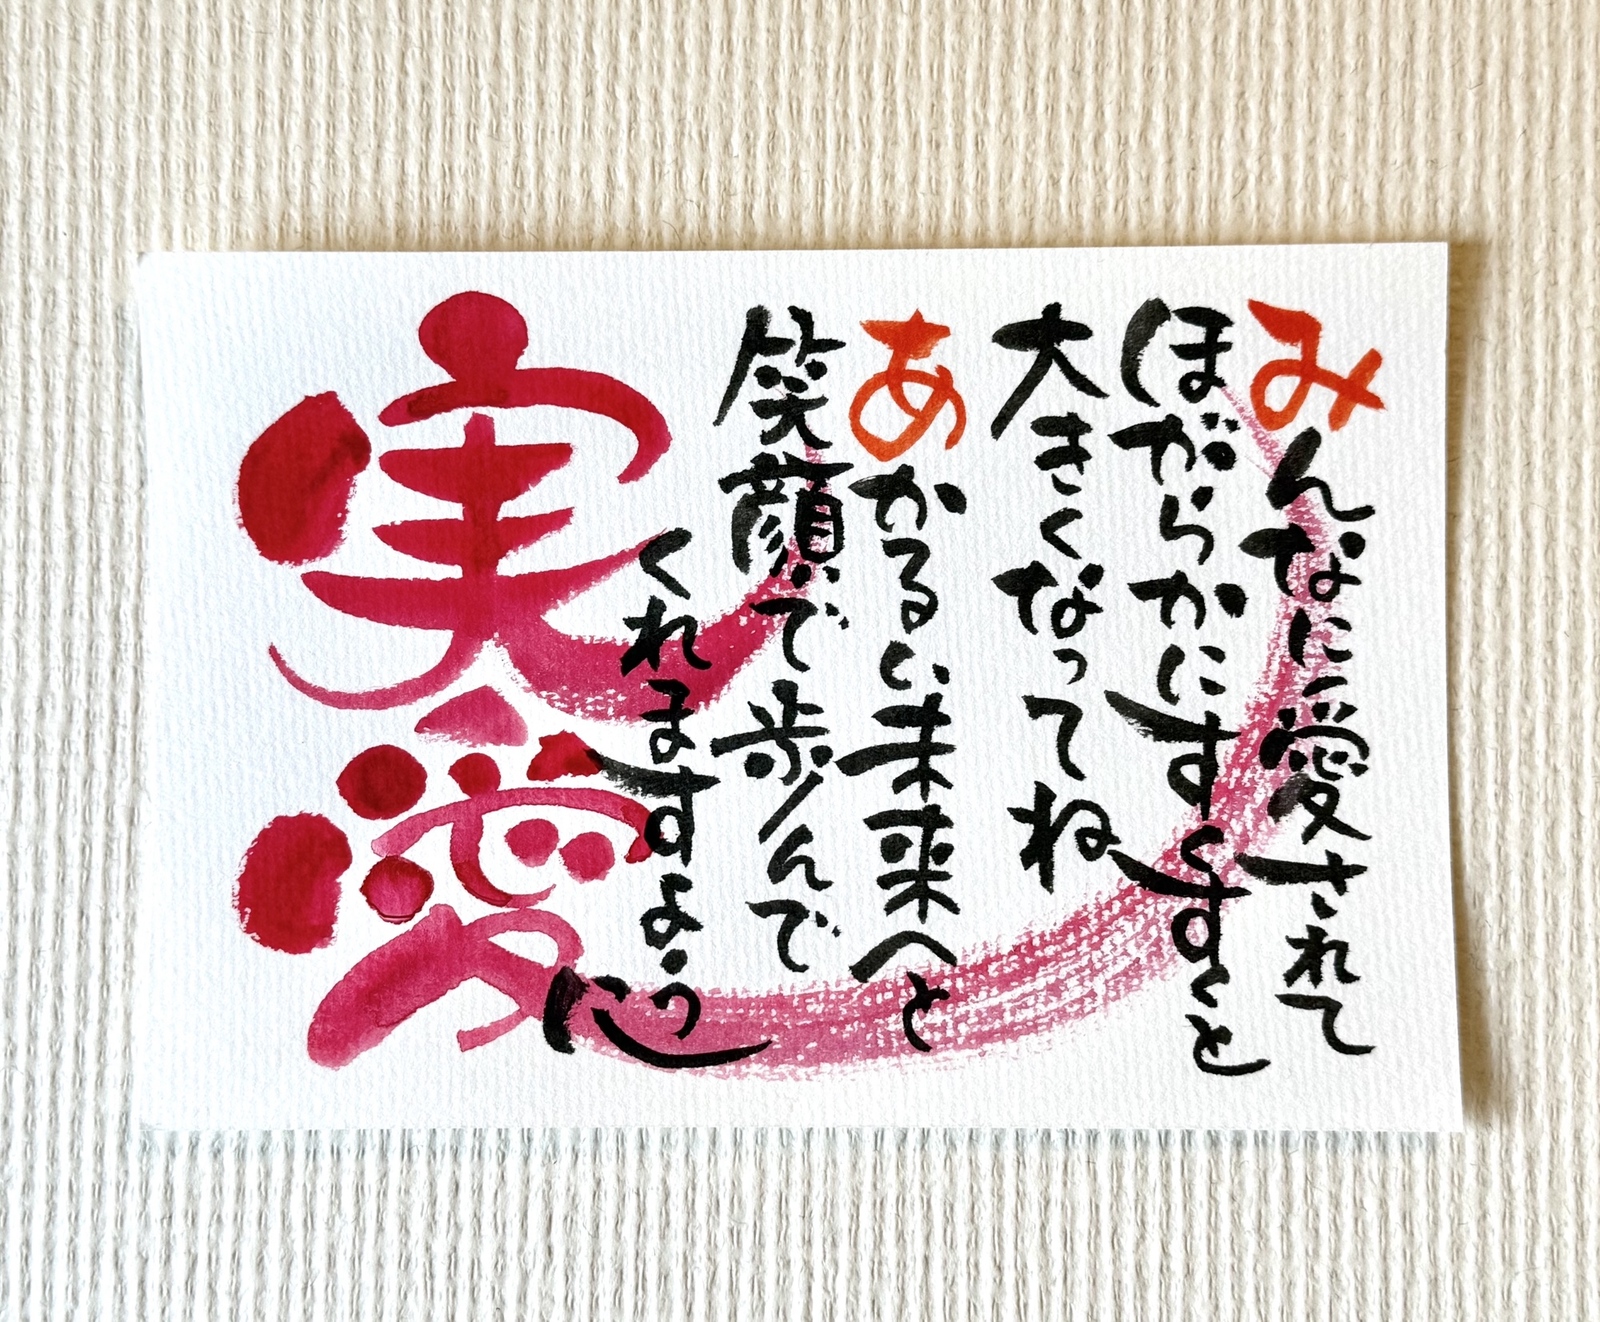 みんなに愛されて
ほがらかにすくすくと
大きくなってね
あかるい未来へと
笑顔で歩んで
くれますように
実愛